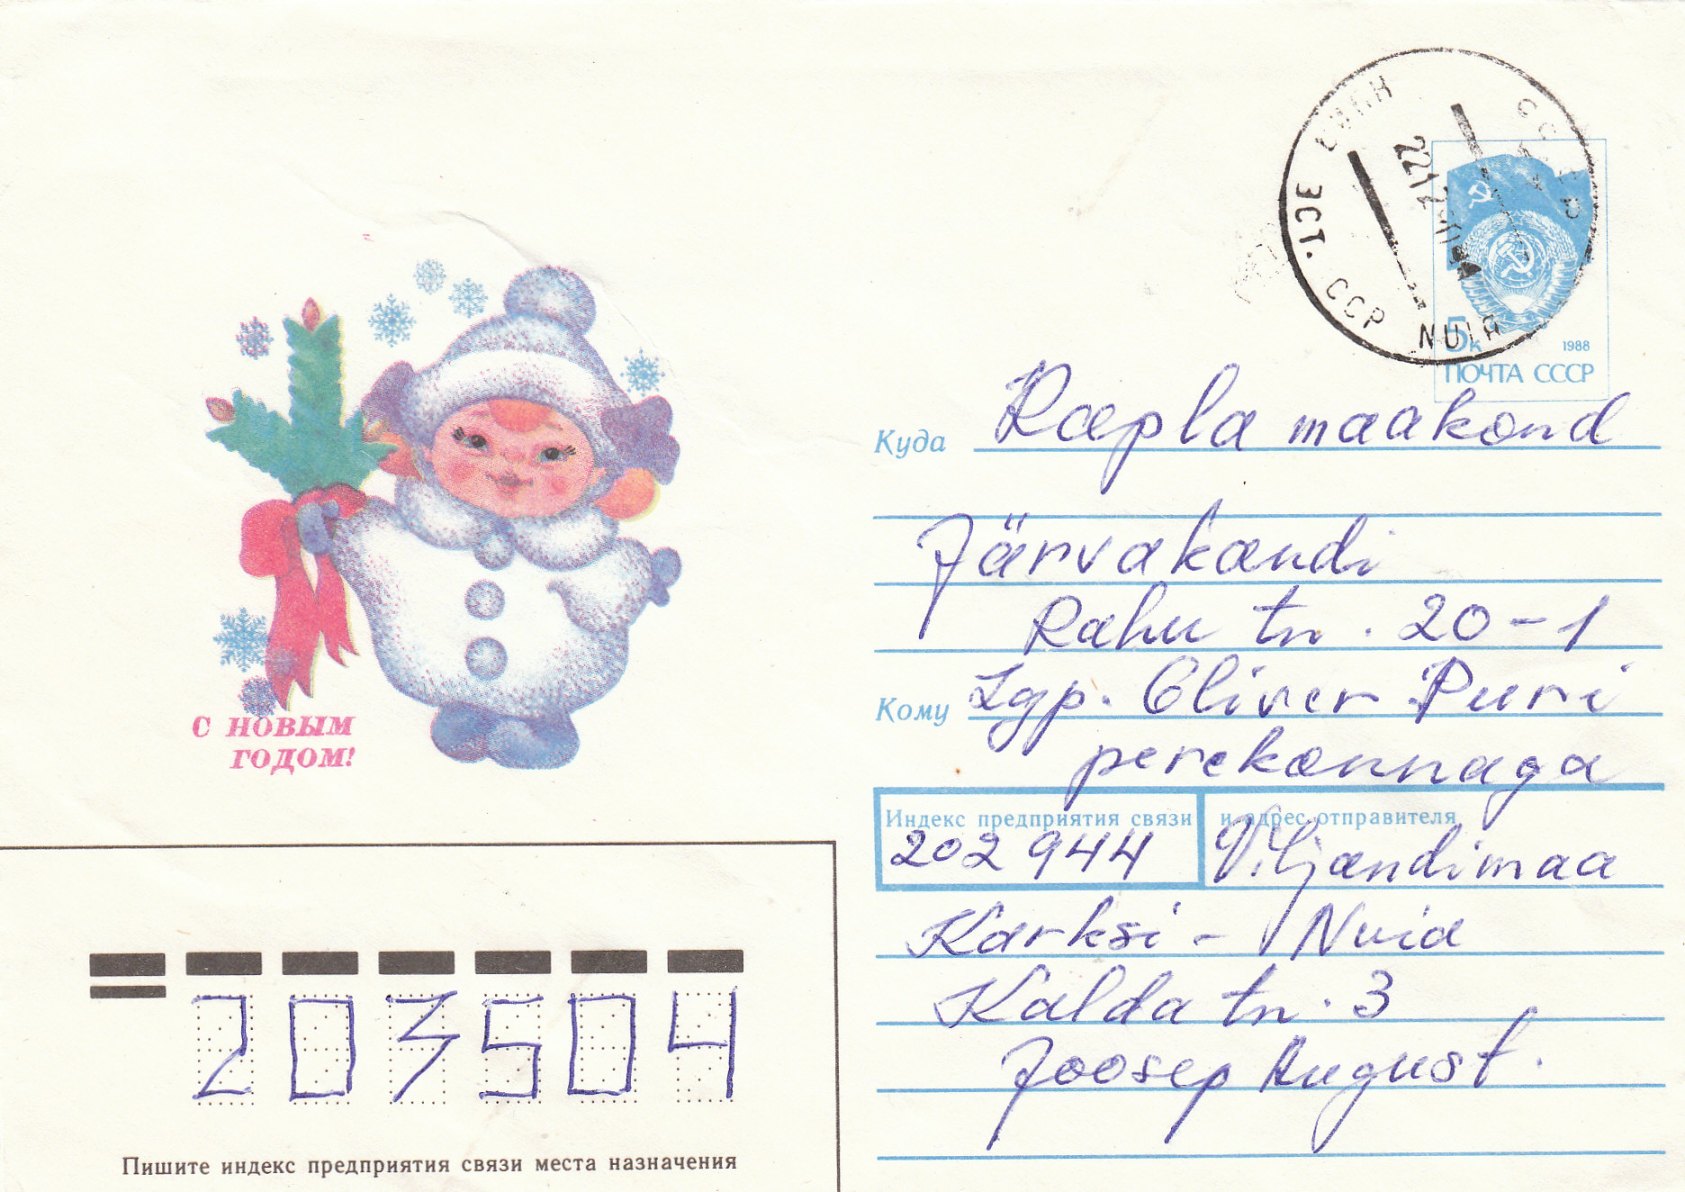 ЭСТ. ССР NUIA
5к 1988
ПОЧТА СССР
С НОВЫМ
ГОДОМ!
Куда Rapla maakond
Järvakandi
Rahu tn. 20-1
Кому Lgp. Oliver Puri
perekonnaga
Индекс предприятия связи и адрес отправителя
202944 Viljandimaa
Karksi-Nuia
Kalda tn. 3
Joosep August.
203504
Пишите индекс предприятия связи места назначения